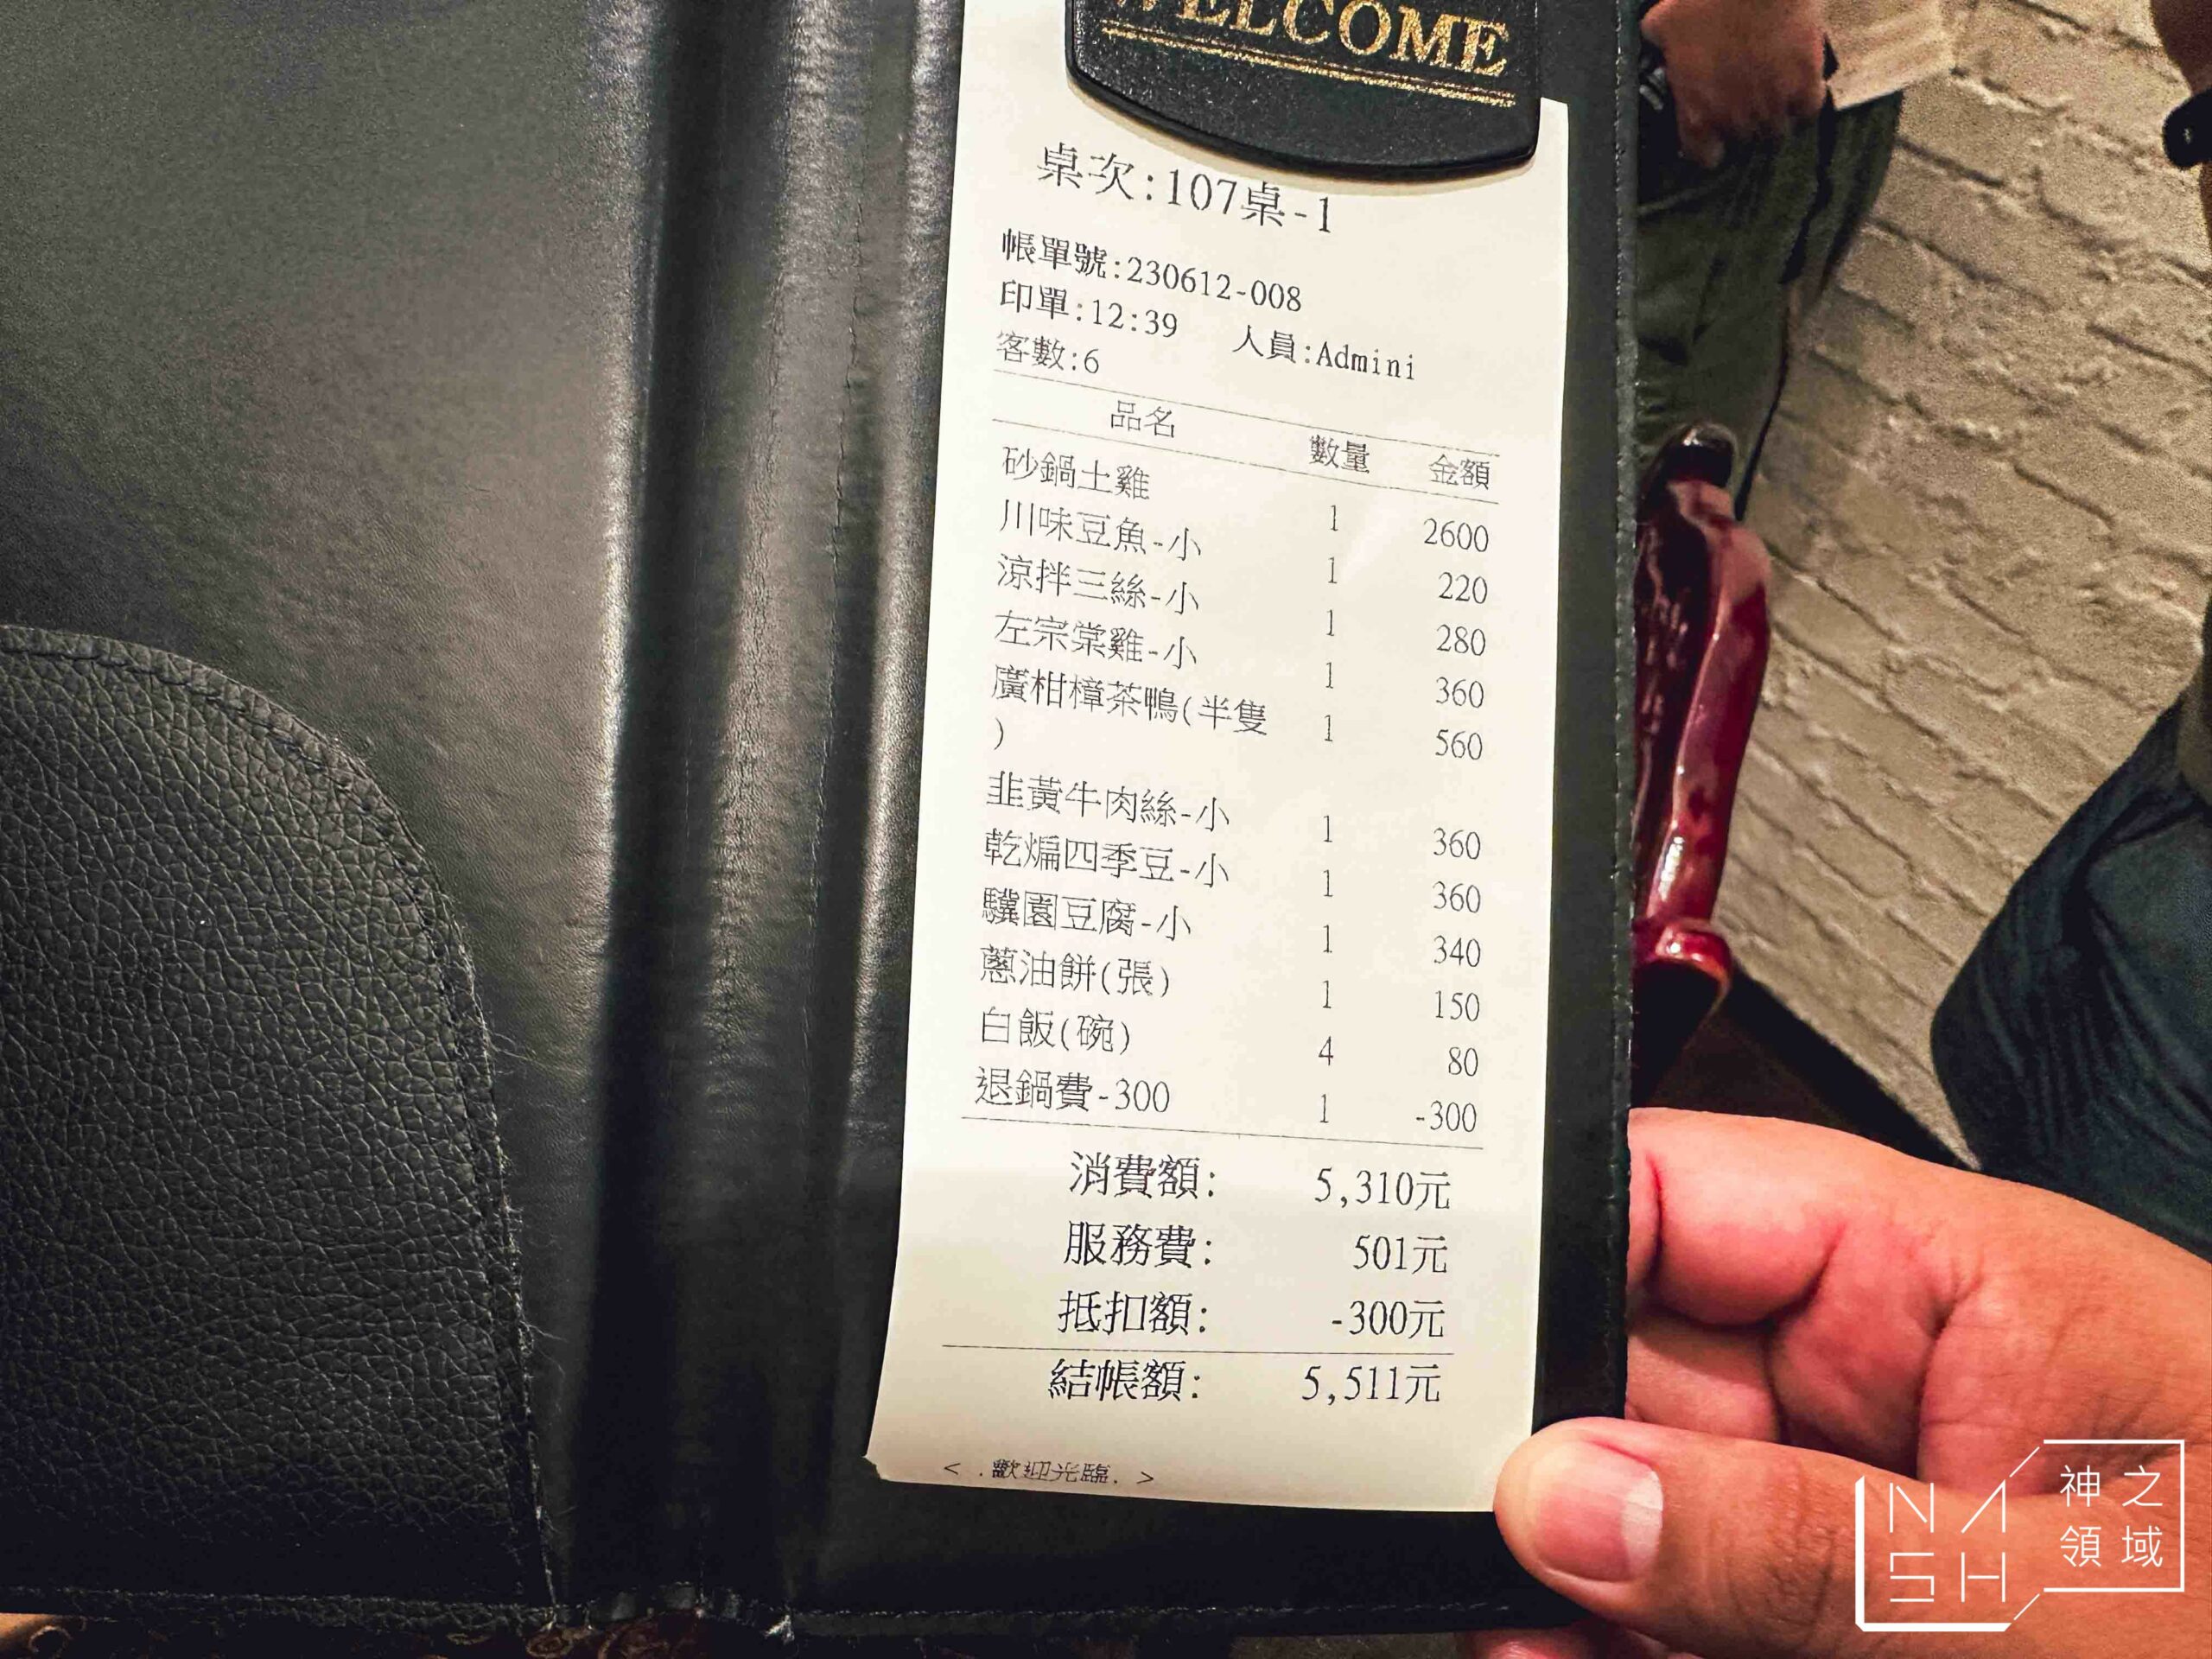 WELCOME
桌次:107桌-1
帳單號:230612-008
印單:12:39 人員:Admini
客數:6
品名 數量 金額
砂鍋土雞 1 2600
川味豆魚-小 1 220
涼拌三絲-小 1 280
左宗棠雞-小 1 360
廣柑樟茶鴨(半隻 1 560
)
韭黃牛肉絲-小 1 360
乾煸四季豆-小 1 360
驥園豆腐-小 1 340
蔥油餅(張) 1 150
白飯(碗) 4 80
退鍋費-300 1 -300
消費額: 5,310元
服務費: 501元
抵扣額: -300元
結帳額: 5,511元
< .歡迎光臨. >
NASH 神之領域